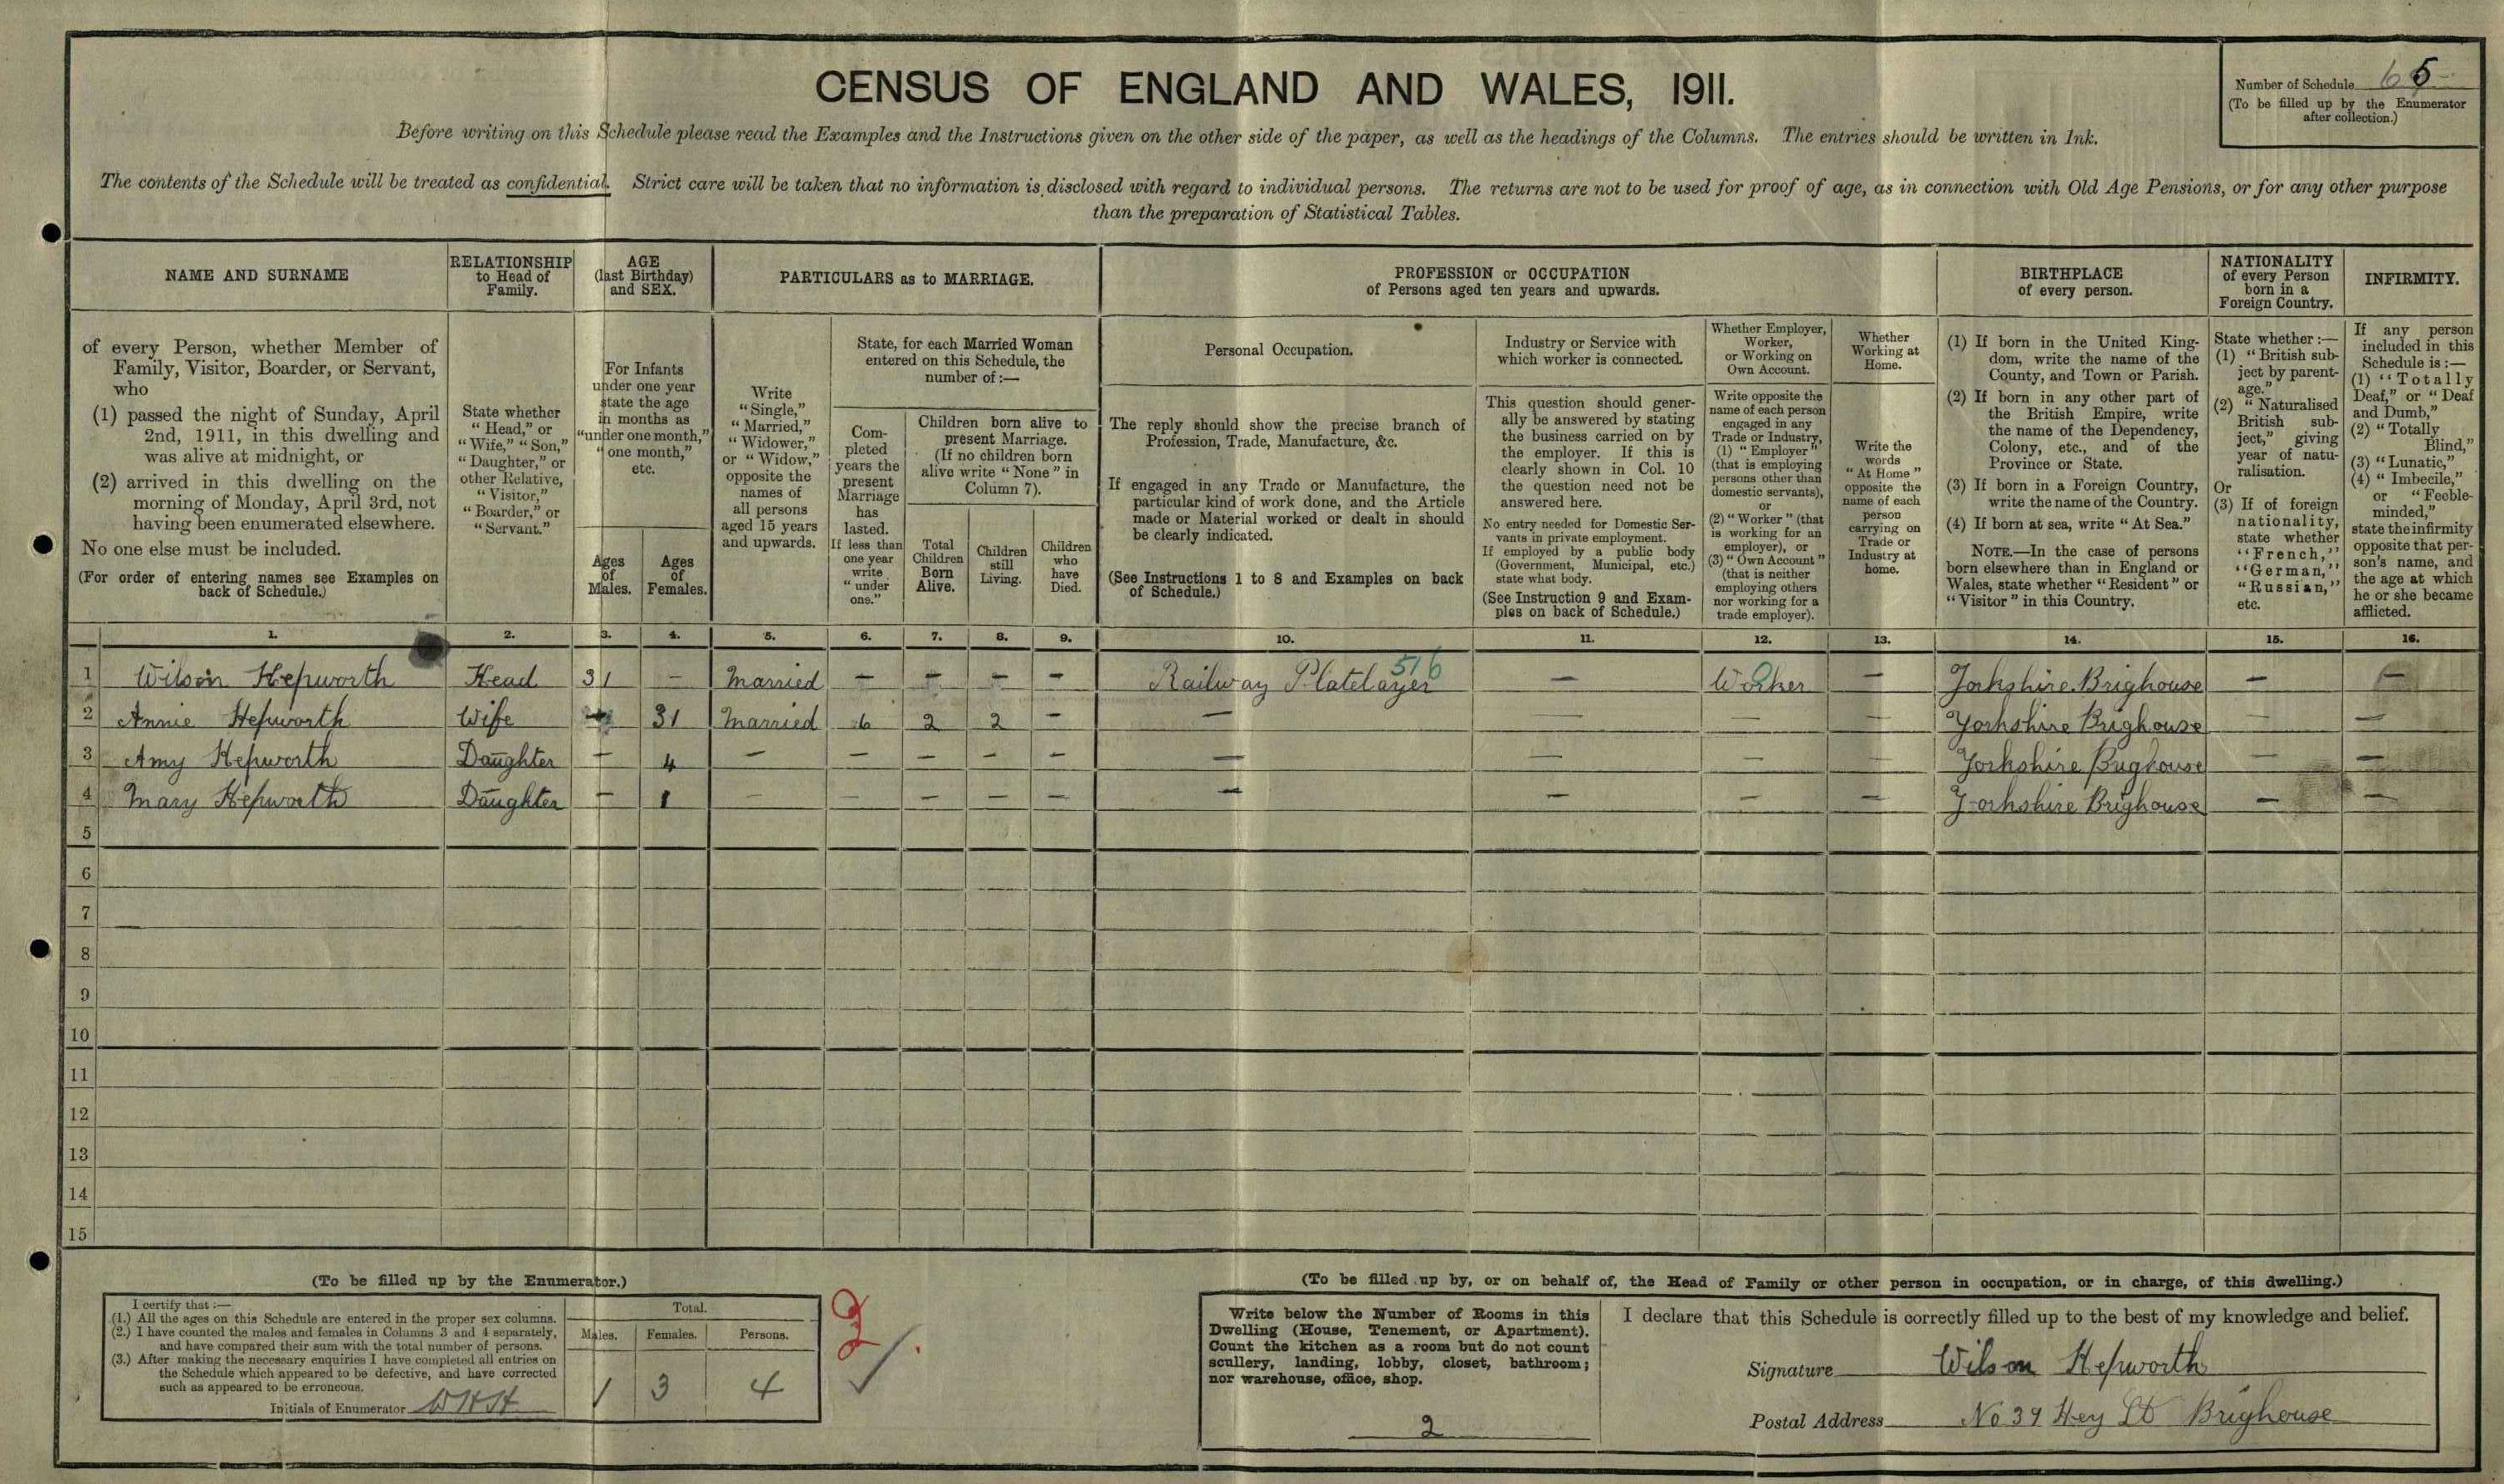 CENSUS OF ENGLAND AND WALES, 1911.
Number of Schedule 65
(To be filled up by the Enumerator
after collection.)
Before writing on this Schedule please read the Examples and the Instructions given on the other side of the paper, as well as the headings of the Columns. The entries should be written in Ink.
The contents of the Schedule will be treated as confidential. Strict care will be taken that no information is disclosed with regard to individual persons. The returns are not to be used for proof of age, as in connection with Old Age Pensions, or for any other purpose
than the preparation of Statistical Tables.
NAME AND SURNAME
RELATIONSHIP
to Head of
Family.
AGE
(last Birthday)
and SEX.
PARTICULARS as to MARRIAGE.
PROFESSION or OCCUPATION
of Persons aged ten years and upwards.
BIRTHPLACE
of every person.
NATIONALITY
of every Person
born in a
Foreign Country.
INFIRMITY.
of every Person, whether Member of
Family, Visitor, Boarder, or Servant,
who
(1) passed the night of Sunday, April
2nd, 1911, in this dwelling and
was alive at midnight, or
(2) arrived in this dwelling on the
morning of Monday, April 3rd, not
having been enumerated elsewhere.
No one else must be included.
(For order of entering names see Examples on
back of Schedule.)
State whether
"Head," or
"Wife," "Son,"
"Daughter," or
other Relative,
"Visitor,"
"Boarder," or
"Servant."
For Infants
under one year
state the age
in months as
"under one month,"
"one month,"
etc.
Ages
of
Males.
Ages
of
Females.
Write
"Single,"
"Married,"
"Widower,"
or "Widow,"
opposite the
names of
all persons
aged 15 years
and upwards.
State, for each Married Woman
entered on this Schedule, the
number of:—
Com-
pleted
years the
present
Marriage
has
lasted.
If less than
one year
write
"under
one."
Children born alive to
present Marriage.
(If no children born
alive write "None" in
Column 7).
Total
Children
Born
Alive.
Children
still
Living.
Children
who
have
Died.
Personal Occupation.
The reply should show the precise branch of
Profession, Trade, Manufacture, &c.
If engaged in any Trade or Manufacture, the
particular kind of work done, and the Article
made or Material worked or dealt in should
be clearly indicated.
(See Instructions 1 to 8 and Examples on back
of Schedule.)
Industry or Service with
which worker is connected.
This question should gener-
ally be answered by stating
the business carried on by
the employer. If this is
clearly shown in Col. 10
the question need not be
answered here.
No entry needed for Domestic Ser-
vants in private employment.
If employed by a public body
(Government, Municipal, etc.)
state what body.
(See Instruction 9 and Exam-
ples on back of Schedule.)
Whether Employer,
Worker,
or Working on
Own Account.
Write opposite the
name of each person
engaged in any
Trade or Industry,
(1) "Employer"
(that is employing
persons other than
domestic servants),
or
(2) "Worker" (that
is working for an
employer), or
(3) "Own Account"
(that is neither
employing others
nor working for a
trade employer).
Whether
Working at
Home.
Write the
words
"At Home"
opposite the
name of each
person
carrying on
Trade or
Industry at
home.
(1) If born in the United King-
dom, write the name of the
County, and Town or Parish.
(2) If born in any other part of
the British Empire, write
the name of the Dependency,
Colony, etc., and of the
Province or State.
(3) If born in a Foreign Country,
write the name of the Country.
(4) If born at sea, write "At Sea."
NOTE.—In the case of persons
born elsewhere than in England or
Wales, state whether "Resident" or
"Visitor" in this Country.
State whether :—
(1) "British sub-
ject by parent-
age."
(2) "Naturalised
British sub-
ject," giving
year of natu-
ralisation.
Or
(3) If of foreign
nationality,
state whether
"French,"
"German,"
"Russian,"
etc.
If any person
included in this
Schedule is :—
(1) "Totally
Deaf," or "Deaf
and Dumb,"
(2) "Totally
Blind,"
(3) "Lunatic,"
(4) "Imbecile,"
or "Feeble-
minded,"
state the infirmity
opposite that per-
son's name, and
the age at which
he or she became
afflicted.
1. 2. 3. 4. 5. 6. 7. 8. 9. 10. 11. 12. 13. 14. 15. 16.
1 Wilson Hepworth Head 31 — Married — — — — Railway Platelayer 516 — Worker — Yorkshire Brighouse — —
2 Annie Hepworth Wife — 31 Married 6 2 2 — — — — — Yorkshire Brighouse — —
3 Amy Hepworth Daughter — 4 — — — — — — — — — Yorkshire Brighouse — —
4 Mary Hepworth Daughter — 1 — — — — — — — — — Yorkshire Brighouse — —
5
6
7
8
9
10
11
12
13
14
15
(To be filled up by the Enumerator.)
I certify that :—
(1.) All the ages on this Schedule are entered in the proper sex columns.
(2.) I have counted the males and females in Columns 3 and 4 separately,
and have compared their sum with the total number of persons.
(3.) After making the necessary enquiries I have completed all entries on
the Schedule which appeared to be defective, and have corrected
such as appeared to be erroneous.
Initials of Enumerator WHH
Total.
Males. Females. Persons.
1 3 4
(To be filled up by, or on behalf of, the Head of Family or other person in occupation, or in charge, of this dwelling.)
Write below the Number of Rooms in this
Dwelling (House, Tenement, or Apartment).
Count the kitchen as a room but do not count
scullery, landing, lobby, closet, bathroom;
nor warehouse, office, shop.
2
I declare that this Schedule is correctly filled up to the best of my knowledge and belief.
Signature Wilson Hepworth
Postal Address No 39 Hey St Brighouse